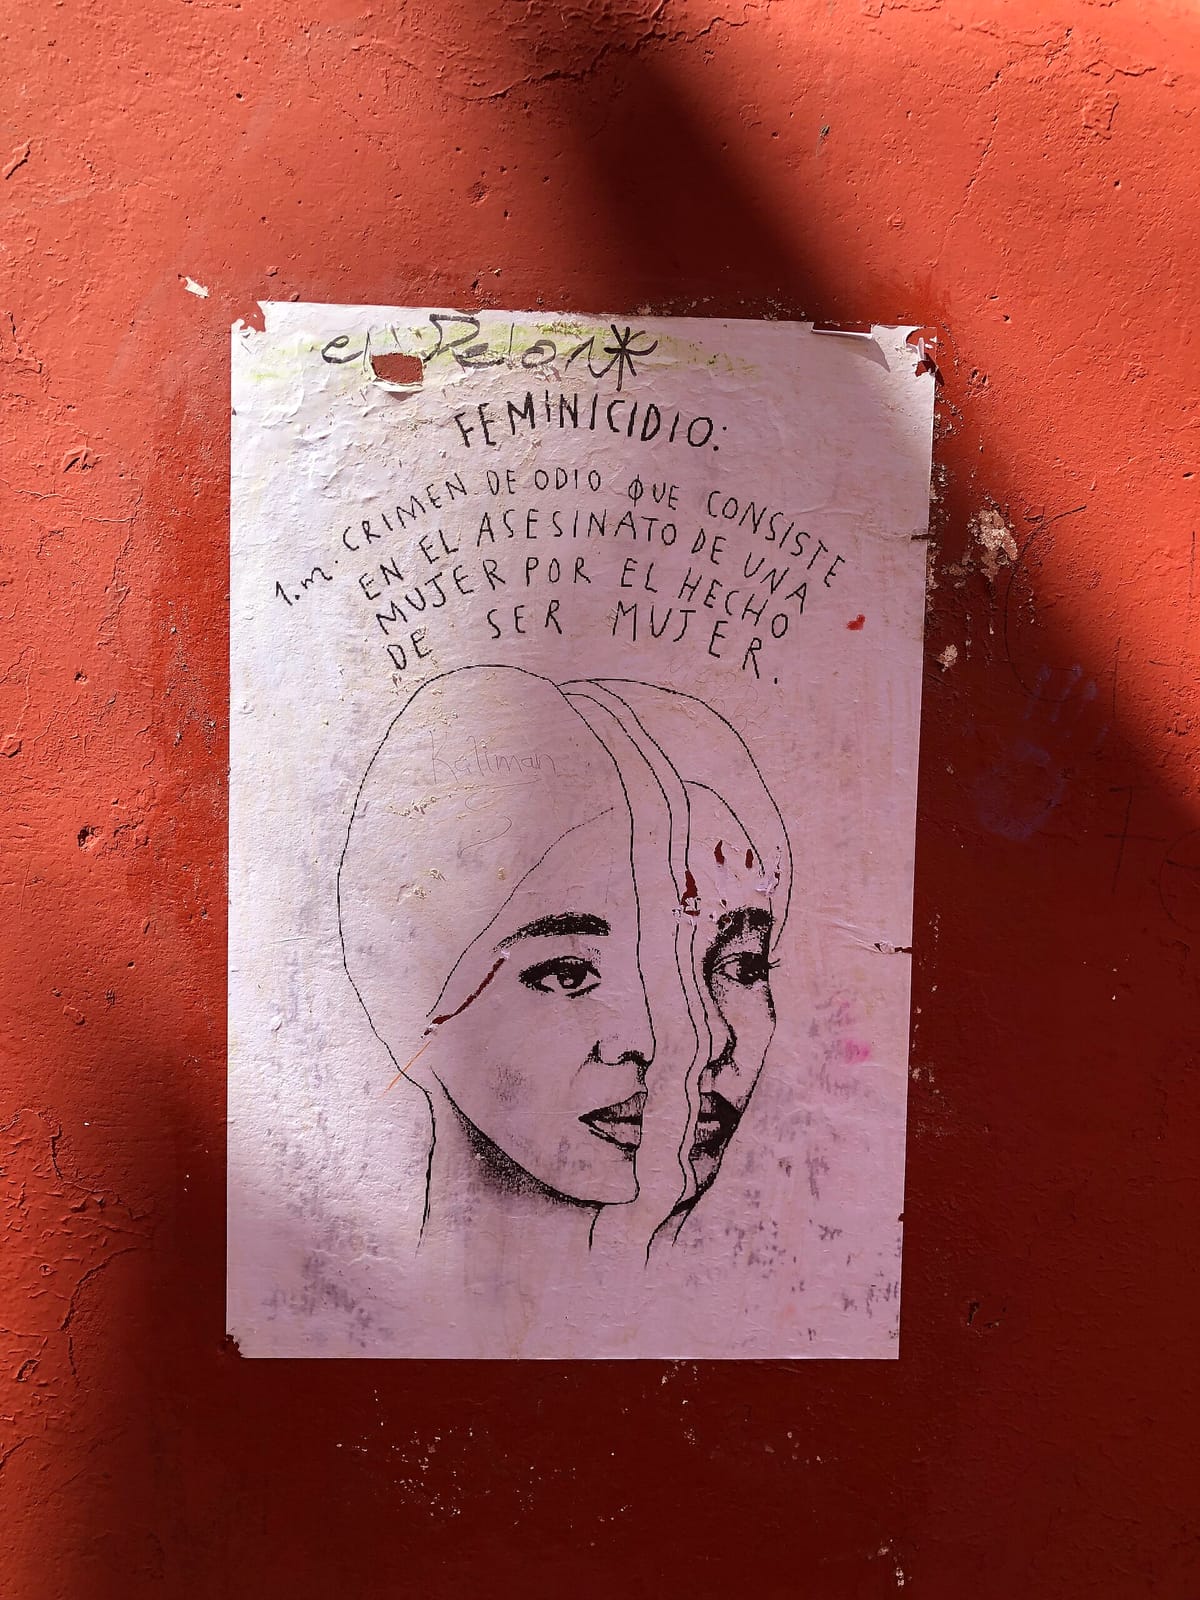 FEMINICIDIO:
1.m. CRIMEN DE ODIO QUE CONSISTE
EN EL ASESINATO DE UNA
MUJER POR EL HECHO
DE SER MUJER.
Kaliman